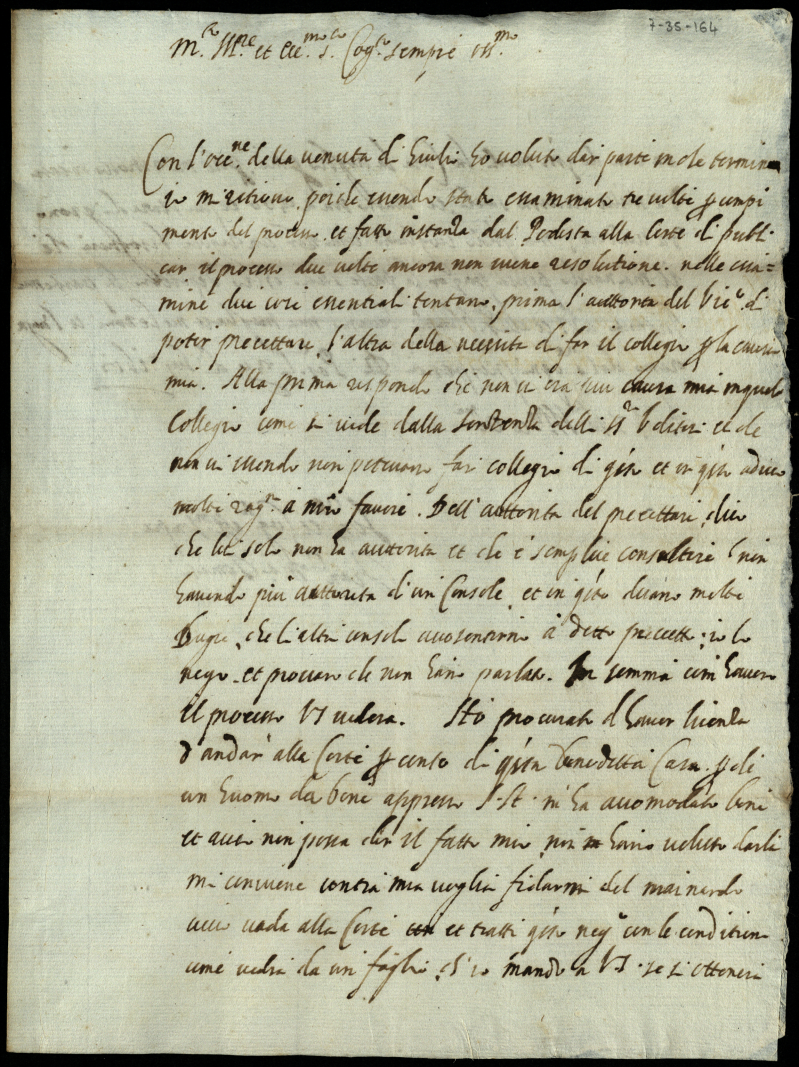 7-35-164
M.to Ill.re et Ecc.mo s.r Cog.to sempre oss.mo
Con l'occ.ne della venuta di Giulio ho voluto dar parte in che termine
io mi ritrovo, poiche essendo stato essaminato tre volte p compi
mento del processo, et fatto instanza dal Podesta alla Corte di publi
car il processo due volte ancora non viene resolutione. nelle essa=
mine due cose essentiali tentano, prima l'auttorita del di
poter precettare, l'altra della necessita di far il collegio p la causa
mia. Alla prima respondo che non vi era più causa mia in quel
Collegio come si vede dalla sentenza delli ss.ri et che
non vi essendo non potevano far collegio di q̃sto et in q̃sto adduco
molte rag.ni à mio favore. Dell'auttorità del precettare, dico
che lui solo non ha auttorita et che è semplice consultore non
havendo più auttorita di un Console, et in q̃sto dicono molte
bugie, che li altri consoli accosentirno à detto precetto; io lo
nego, et provaro che non hano parlato. In somma com havero
il processo VS vederà. Hò procurato d'haver licenza
d'andar alla Corte p conto di q̃sta benedetta Casa, p che
un huomo da bene appresso S. A. m'ha accomodato bene
et acciò non possa dir il fatto mio, non hano voluto darla
mi conviene contra mia voglia fidarmi del mainardo
acciò vada alla Corte et tratti q̃sto neg.o con le conditioni
come vedrà da un foglio, ch'io mando a VS. se si ottenerà